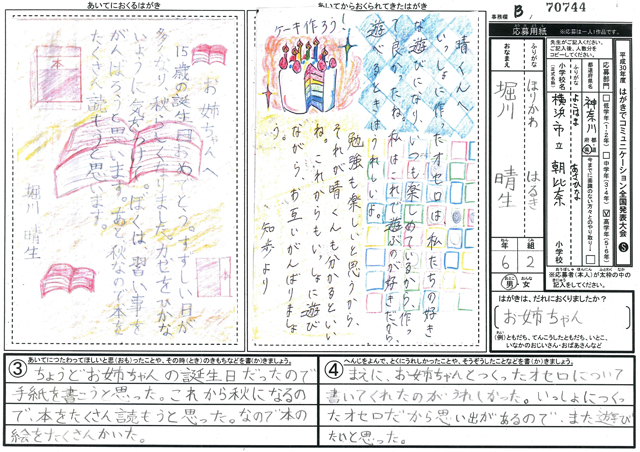 あいてにおくるはがき
お姉ちゃんへ
15歳の誕生日おめでとう。すずしい日が
がんばろうと思います。あと秋なので本を
読もうと思います。
堀川 晴生
本
あいてからおくられてきたはがき
ケーキ作ろう!
晴くんへ
いっしょに作ったオセロは私たちの好き
な遊びになり、いつも楽しめているから、作っ
て良かったね。私はこれで遊ぶのが好きだから、
遊べるときはうれしいよ。
勉強も楽しいと思うから、
それが晴くんも分かるといい
ね。これからもいっしょに遊び
ながら、お互いがんばりましょ
う。
知歩より
事務欄 B 70744
応募用紙
※応募は一人1作品です。
先生がご記入ください。
ご記入後、人数分を
コピーしてください。
平成30年度 はがきでコミュニケーション全国発表大会 S
応募部門
低学年(1・2年)
中学年(3・4年)
高学年(5・6年)
都道府県名
神奈川
都道府県
ふりがな
よこはま
あさひな
小学校名
(正式名称)
横浜市立 朝比奈 小学校
ふりがな
ほりかわ はるき
おなまえ
堀川 晴生
年 組
6 2
男 女
※応募者(本人)が太枠の中の
記入をしてください。
はがきは、だれにおくりましたか?
お姉ちゃん
(例)ともだち、てんこうしたともだち、いとこ、
いなかのおじいさん・おばあさんなど
③
あいてにつたわってほしいと思(おも)ったことや、その時(とき)のきもちなどを書(か)きましょう。
ちょうどお姉ちゃんの誕生日だったので
手紙を書こうと思った。これから秋になるの
で、本をたくさん読もうと思った。なので本の
絵をたくさんかいた。
④
へんじをよんで、とくにうれしかったことや、そうぞうしたことなどを書(か)きましょう。
まえに、お姉ちゃんとつくったオセロについて
書いてくれたのがうれしかった。いっしょにつくっ
たオセロだから思い出があるので、また遊び
たいと思った。